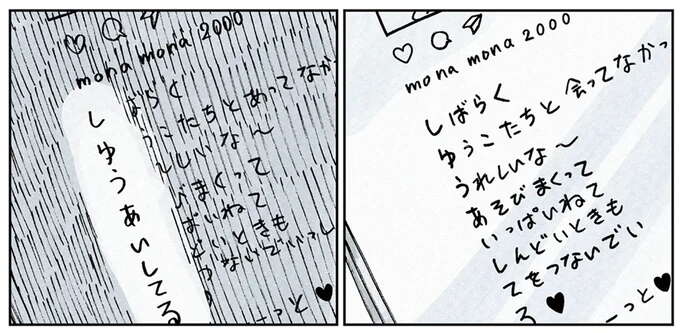 mona mona 2000
しばらく
ゆうこたちと 会ってなかっ
うれしいな〜
あそびまくって
いっぱいねて
しんどいときも
てをつないでい
る ♥
ーっと♥
mona mona 2000
しゅうあいしてる
ばらく
うこたちとあってなか
しいな〜
びまくって
ぱいねて
どいときも
つないでいっし
ーっと♥